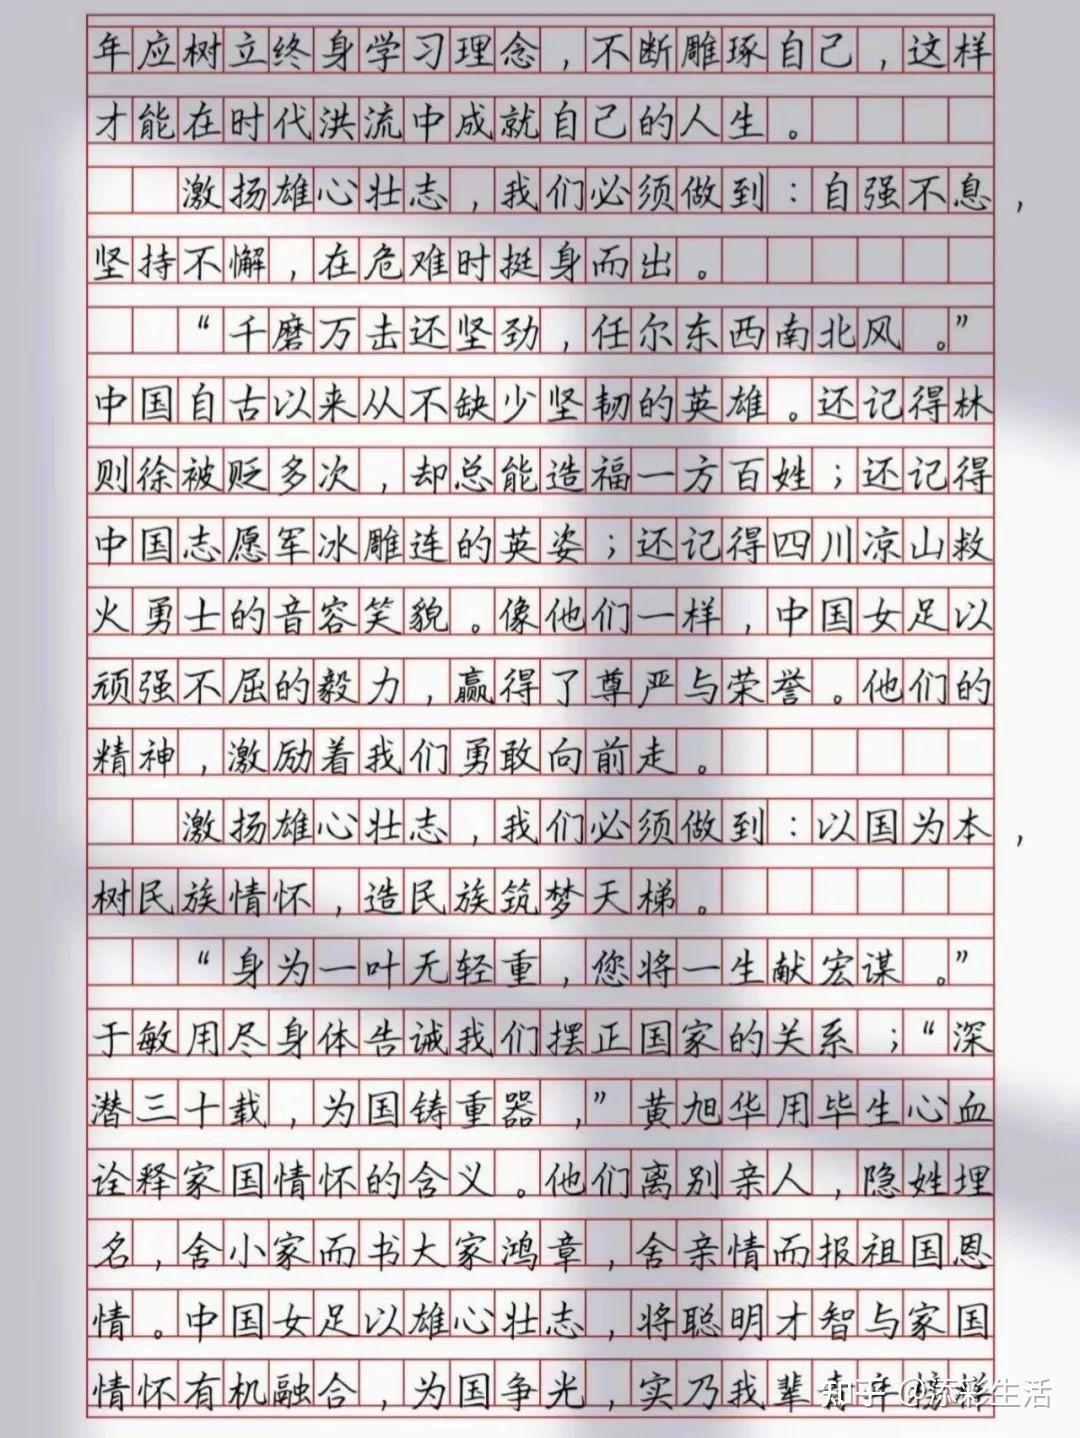 年应树立终身学习理念，不断雕琢自己，这样
才能在时代洪流中成就自己的人生。
激扬雄心壮志，我们必须做到：自强不息，
坚持不懈，在危难时挺身而出。
“千磨万击还坚劲，任尔东西南北风。”
中国自古以来从不缺少坚韧的英雄。还记得林
则徐被贬多次，却总能造福一方百姓；还记得
中国志愿军冰雕连的英姿；还记得四川凉山救
火勇士的音容笑貌。像他们一样，中国女足以
顽强不屈的毅力，赢得了尊严与荣誉。他们的
精神，激励着我们勇敢向前走。
激扬雄心壮志，我们必须做到：以国为本，
树民族情怀，造民族筑梦天梯。
“身为一叶无轻重，您将一生献宏谋。”
于敏用尽身体告诫我们摆正国家的关系；“深
潜三十载，为国铸重器，”黄旭华用毕生心血
诠释家国情怀的含义。他们离别亲人，隐姓埋
名，舍小家而书大家鸿章，舍亲情而报祖国恩
情。中国女足以雄心壮志，将聪明才智与家国
情怀有机融合，为国争光，实乃我辈青年榜样
知乎 @添彩生活